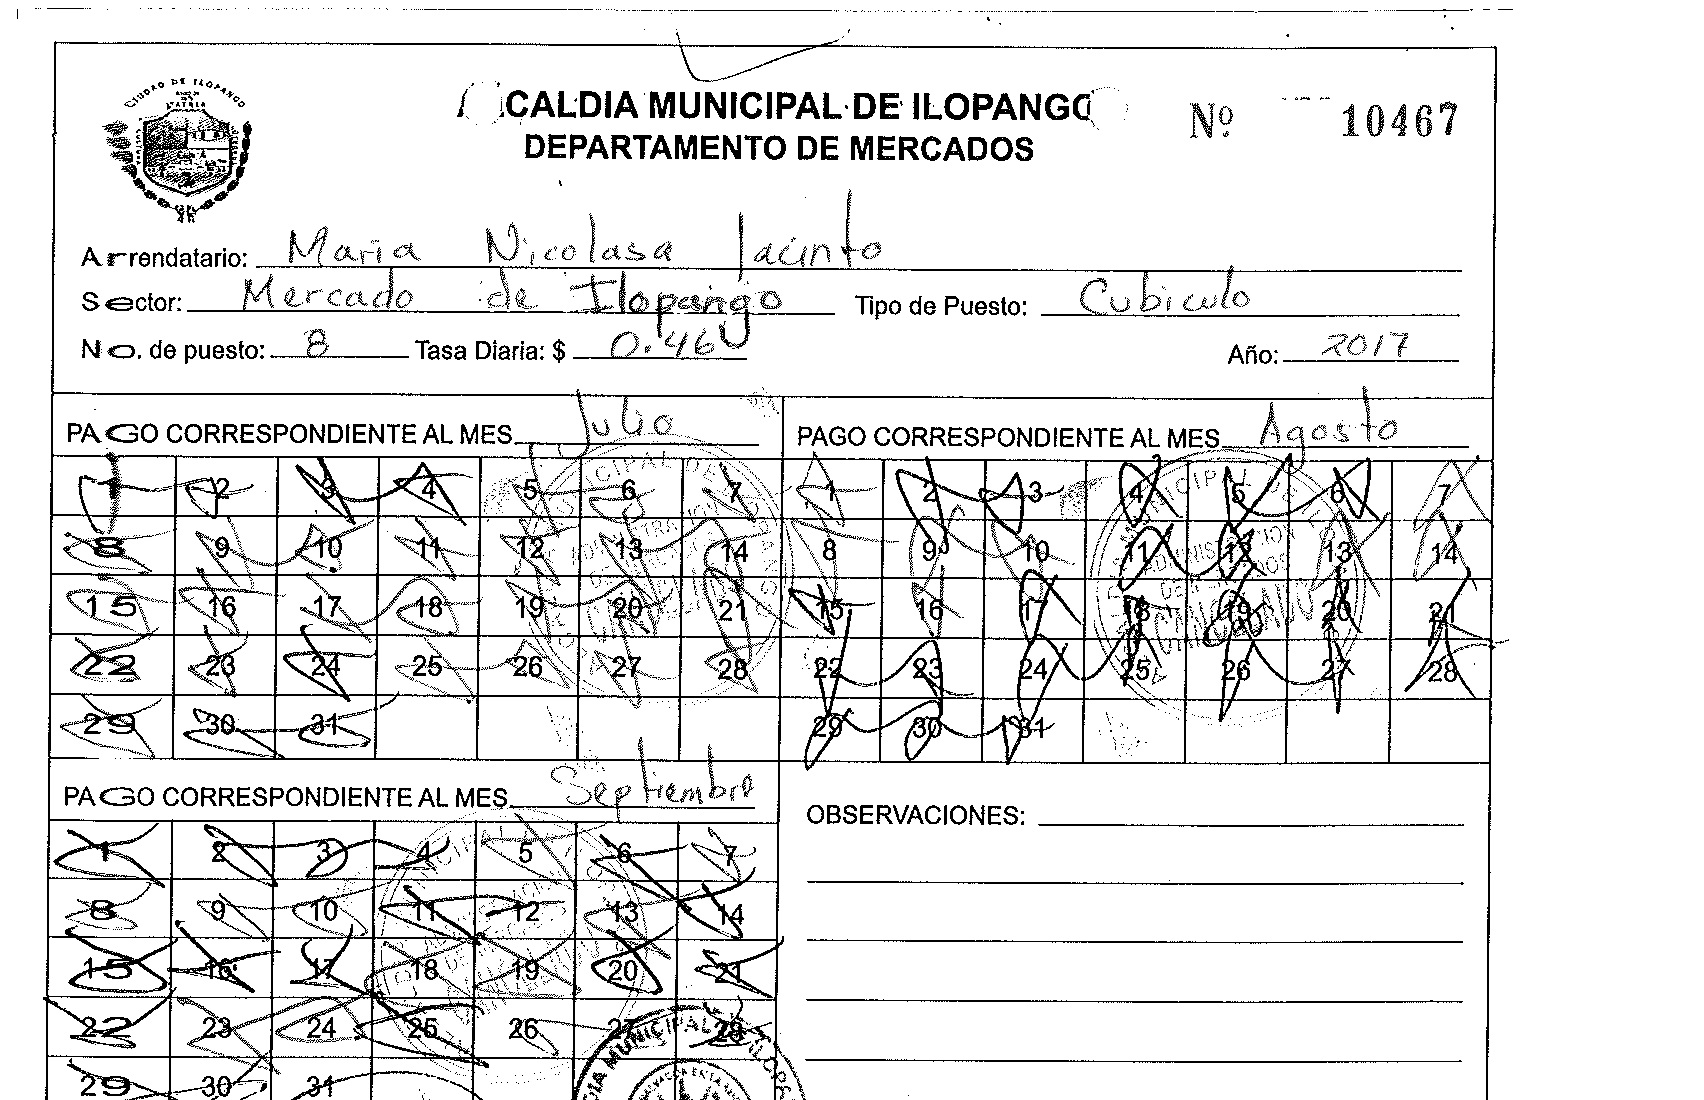 CIUDAD DE ILOPANGO
CALDIA MUNICIPAL DE ILOPANGO
Nº 10467
DEPARTAMENTO DE MERCADOS
Arrendatario: Maria Nicolasa Jacinto
Sector: Mercado de Ilopango Tipo de Puesto: Cubiculo
No. de puesto: 8 Tasa Diaria: $ 0.46 Año: 2017
PAGO CORRESPONDIENTE AL MES Julio
1 2 3 4 5 6 7
8 9 10 11 12 13 14
15 16 17 18 19 20 21
22 23 24 25 26 27 28
29 30 31
PAGO CORRESPONDIENTE AL MES Agosto
1 2 3 4 5 6 7
8 9 10 11 12 13 14
15 16 17 18 19 20 21
22 23 24 25 26 27 28
29 30 31
PAGO CORRESPONDIENTE AL MES Septiembre
1 2 3 4 5 6 7
8 9 10 11 12 13 14
15 16 17 18 19 20 21
22 23 24 25 26 27 28
29 30 31
OBSERVACIONES: